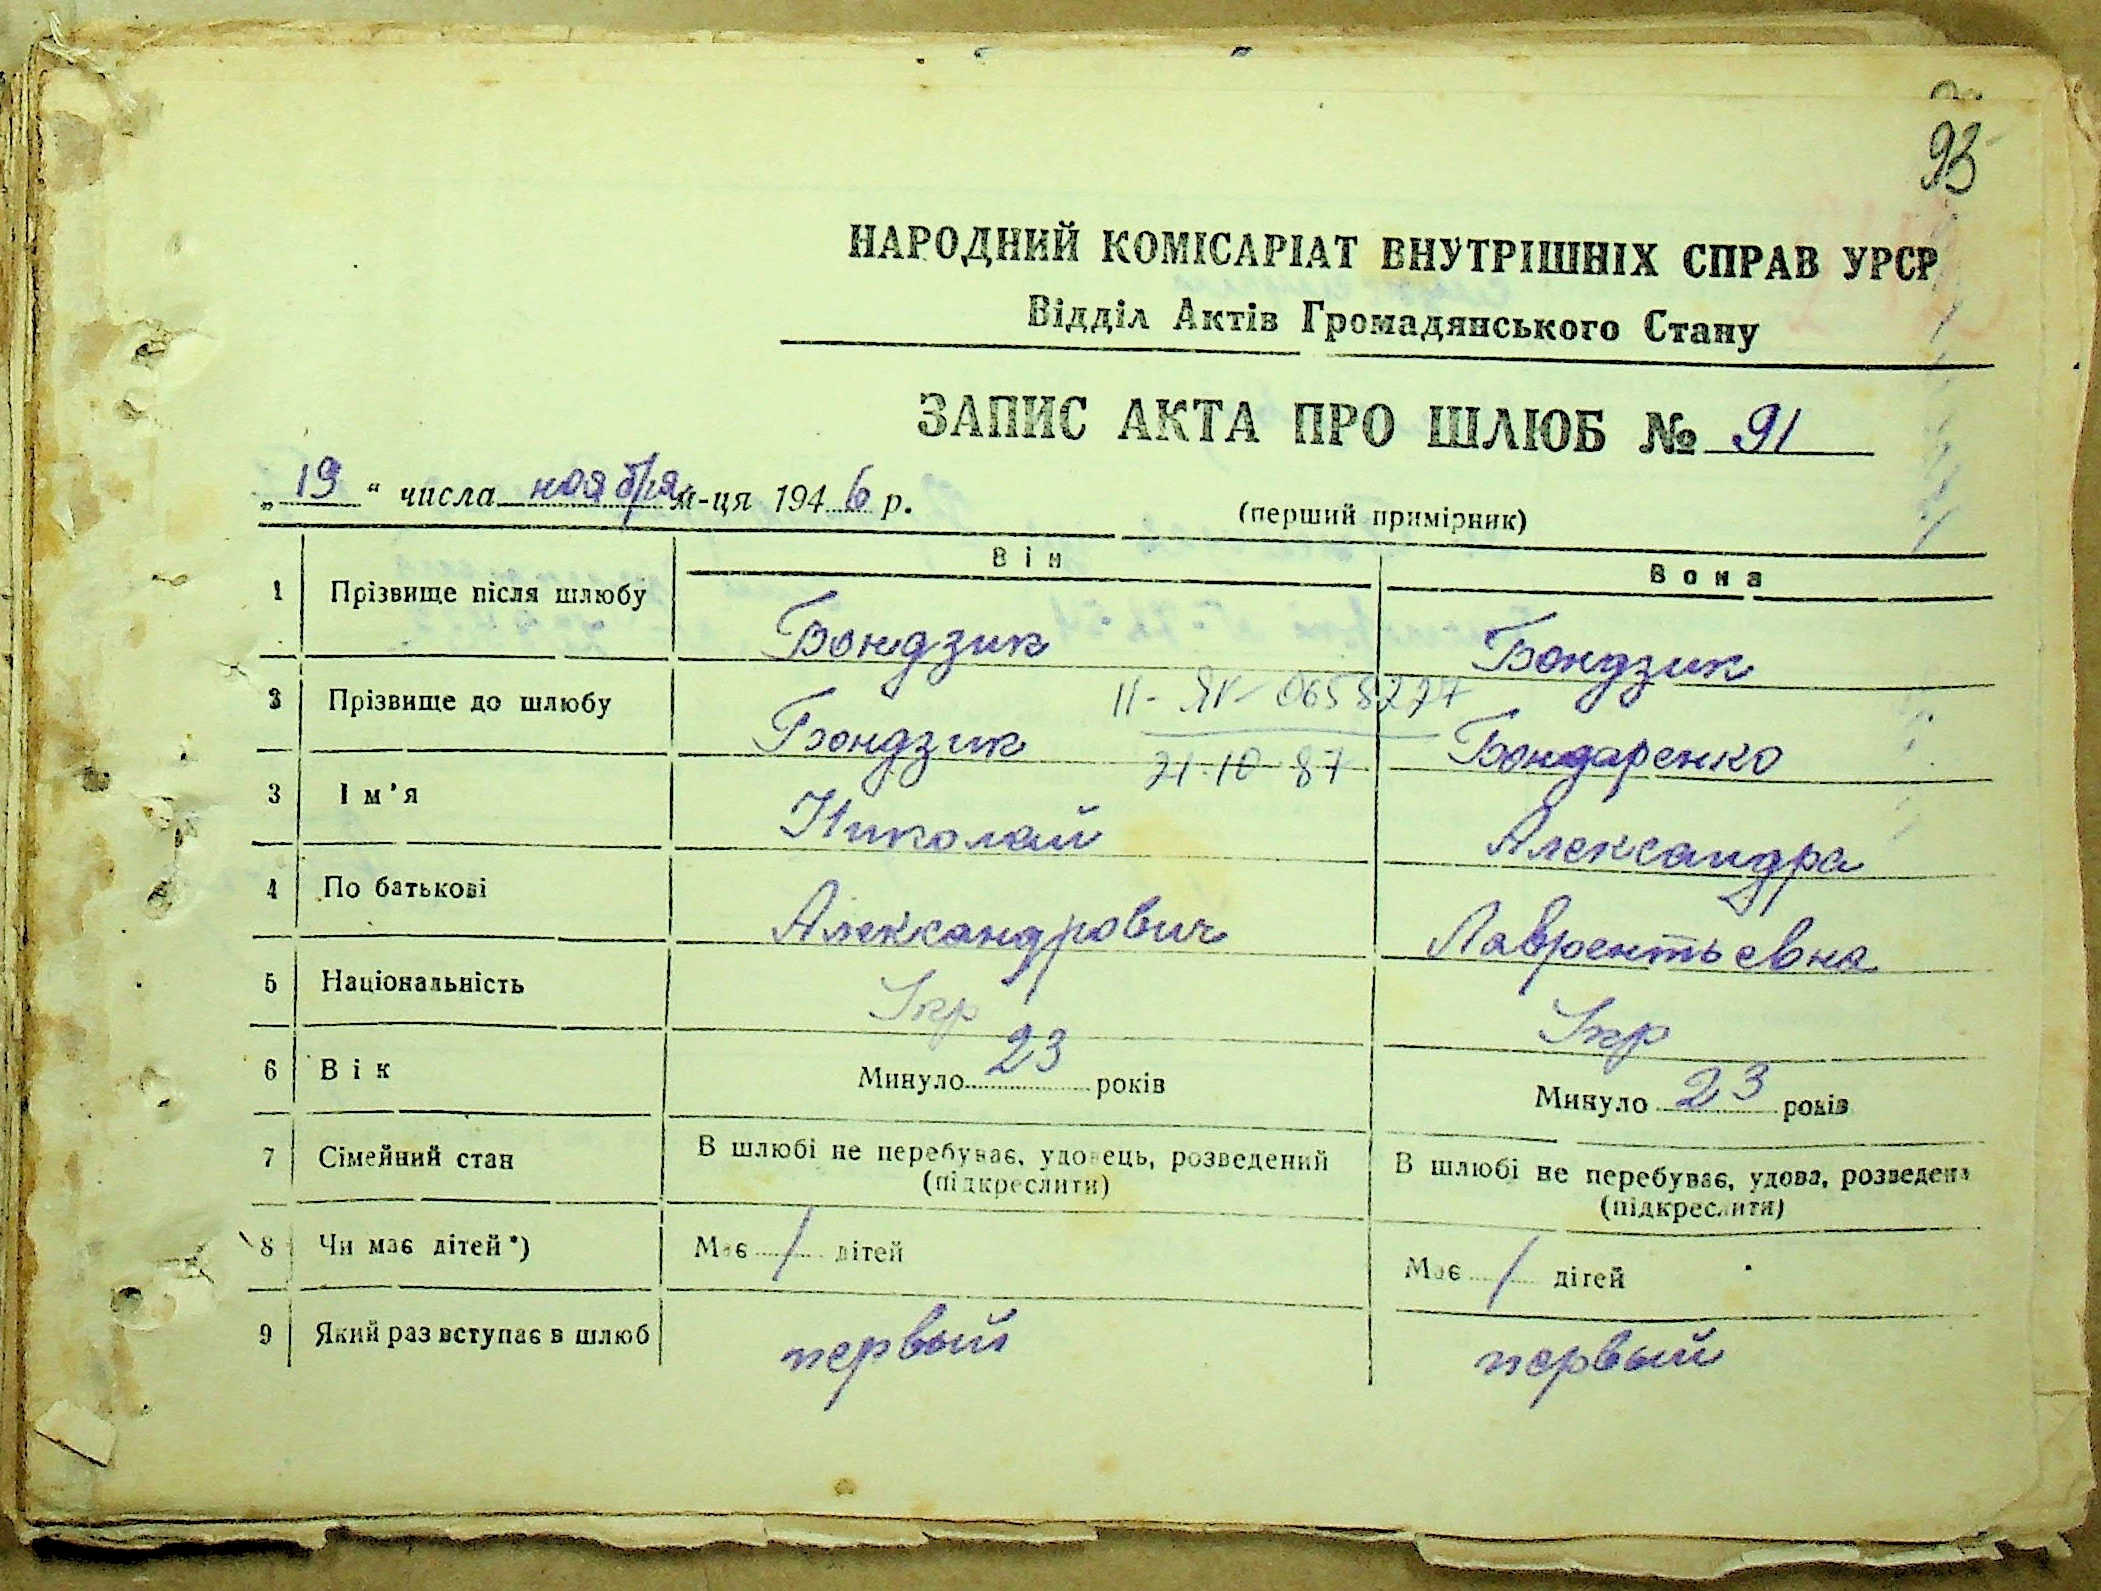 93
НАРОДНИЙ КОМІСАРІАТ ВНУТРІШНІХ СПРАВ УРСР
Відділ Актів Громадянського Стану
ЗАПИС АКТА ПРО ШЛЮБ № 91
„ 19 “ числа ноября м-ця 194 6 р.
(перший примірник)
Він Вона
1 Прізвище після шлюбу Бондзик Бондзик
II-ЯК-0658277
2 Прізвище до шлюбу Бондзик Бондаренко
21.10.87
3 Ім’я Николай Александра
4 По батькові Александрович Лаврентьевна
5 Національність Укр Укр
6 Вік Минуло 23 років Минуло 23 років
7 Сімейний стан В шлюбі не перебуває, удовець, розведений (підкреслити) В шлюбі не перебуває, удова, розведена (підкреслити)
8 Чи має дітей*) Має / дітей Має / дітей
9 Який раз вступає в шлюб первый первый